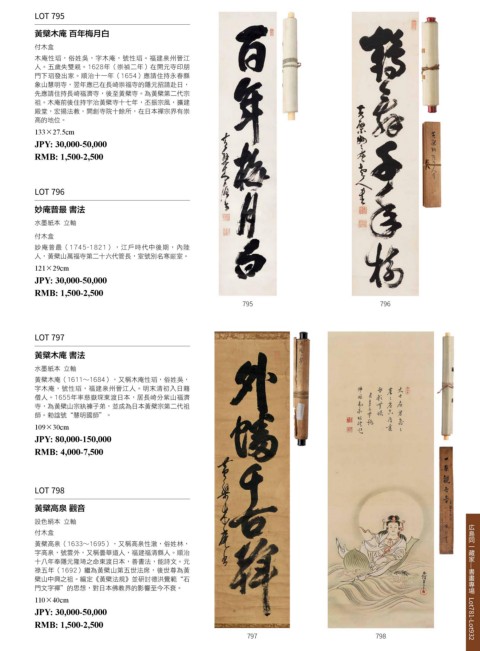 LOT 795
黃檗木庵 百年梅月白
付木盒
木庵性瑫，俗姓吳，字木庵，號性瑫。福建泉州晉江
人。五歲失雙親。1628年（崇禎二年）在開元寺印朗
門下培發出家。順治十一年（1654）應請住持永春縣
象山慧明寺，翌年應已在長崎崇福寺的隱元招請赴日，
先應請住持長崎福濟寺，後至黃檗寺。為黃檗第二代宗
祖。木庵前後住持宇治黃檗寺十七年，丕振宗風，擴建
殿堂，宏揚法教，開創寺院十餘所，在日本禪宗界有崇
高的地位。
133×27.5cm
JPY: 30,000-50,000
RMB: 1,500-2,500
LOT 796
妙庵普最 書法
水墨紙本 立軸
付木盒
妙庵普最（1745-1821），江戶時代中後期，內陸
人，黃檗山萬福寺第二十六代管長，室號別名寒巖室。
121×29cm
JPY: 30,000-50,000
RMB: 1,500-2,500
百年梅月白
795
796
LOT 797
黃檗木庵 書法
水墨紙本 立軸
黃檗木庵（1611～1684），又稱木庵性瑫，俗姓吳，
字木庵，號性瑫，福建泉州晉江人。明末清初入日籍
僧人。1655年率慈嶽琛東渡日本，居長崎分紫山福濟
寺，為黃檗山宗執褲子弟，並成為日本黃檗宗第二代祖
師。勅諡號“慧明國師”。
109×30cm
JPY: 80,000-150,000
RMB: 4,000-7,500
LOT 798
黃檗高泉 觀音
設色絹本 立軸
付木盒
黃檗高泉（1633～1695），又稱高泉性潡，俗姓林，
字高泉，號雲外，又稱曇華道人，福建福清縣人。順治
十八年奉隱元隆琦之命東渡日本，善書法，能詩文。元
祿五年（1692）繼為黃檗山第五世法席，後世尊為黃
檗山中興之祖。編定《黃檗法規》並研討德洪覺範“石
門文字禪”的思想，對日本佛教界的影響至今不衰。
110×40cm
JPY: 30,000-50,000
RMB: 1,500-2,500
797
798
Lot791-Lot932